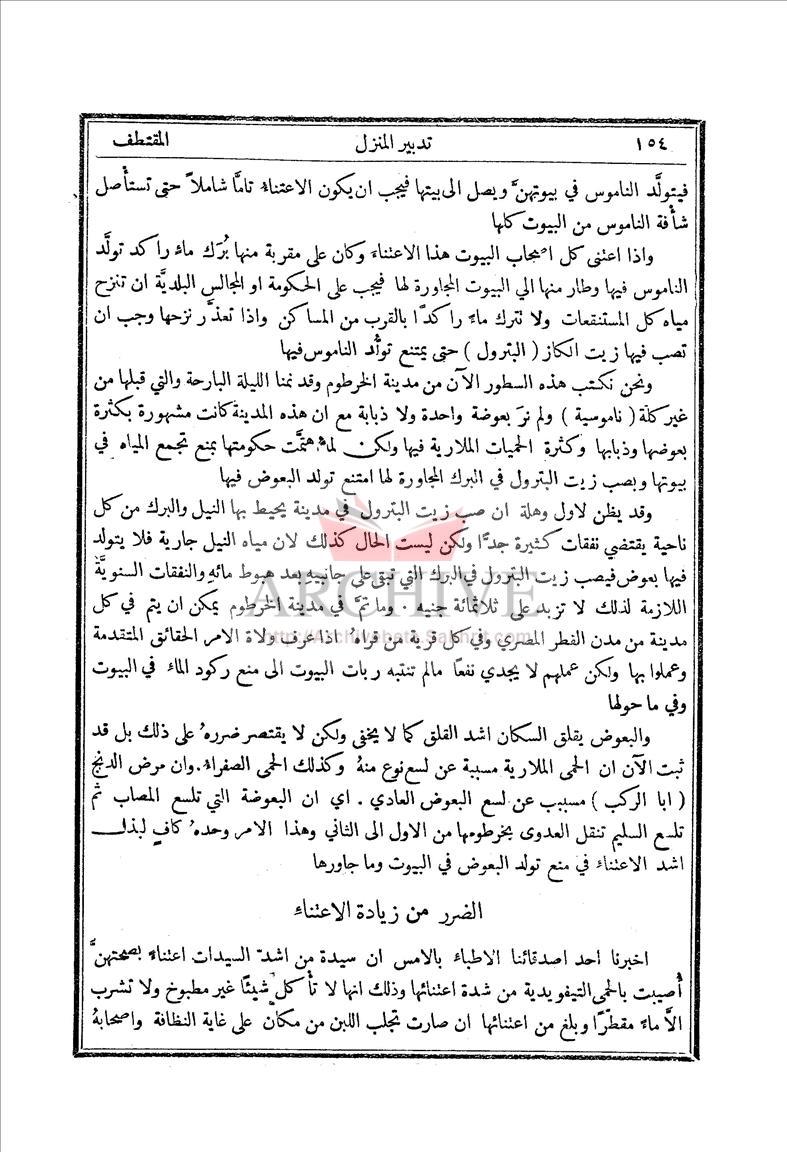 ١٥٤ تدبير المنزل المقتطف
فيتولَّد الناموس في بيوتهنَّ ويصل الى بيتها فيجب ان يكون الاعتناء تامًّا شاملاً حتى تستأصل
شأفة الناموس من البيوت كلها
واذا اعتنى كل اصحاب البيوت هذا الاعتناء وكان على مقربة منها بُرَك ماء راكد تولَّد
الناموس فيها وطار منها الي البيوت المجاورة لها فيجب على الحكومة او المجالس البلديَّة ان تنزح
مياه كل المستنقعات ولا تترك ماءً راكدًا بالقرب من المساكن واذا تعذَّر نزحها وجب ان
تصب فيها زيت الكاز ( البترول ) حتى يمتنع تولُّد الناموس فيها
ونحن نكتب هذه السطور الآن من مدينة الخرطوم وقد نمنا الليلة البارحة والتي قبلها من
غير كلة ( ناموسية ) ولم نرَ بعوضة واحدة ولا ذبابة مع ان هذه المدينة كانت مشهورة بكثرة
بعوضها وذبابها وكثرة الحميات الملارية فيها ولكن لما اهتمَّت حكومتها بمنع تجمع المياه في
بيوتها وبصب زيت البترول في البرك المجاورة لها امتنع تولد البعوض فيها
وقد يظن لاول وهلة ان صب زيت البترول في مدينة يحيط بها النيل والبرك من كل
ناحية يقتضي نفقات كثيرة جدًّا ولكن ليست الحال كذلك لان مياه النيل جارية فلا يتولد
فيها بعوض فيصب زيت البترول في البرك التي تبقى على جانبيهِ بعد هبوط مائهِ والنفقات السنويَّة
اللازمة لذلك لا تزيد على ثلاثمائة جنيه ٠ وما تمَّ في مدينة الخرطوم يمكن ان يتم في كل
مدينة من مدن القطر المصري وفي كل قرية من قراهُ اذا عرف ولاة الامر الحقائق المتقدمة
وعملوا بها ولكن عملهم لا يجدي نفعًا مالم تنتبه ربات البيوت الى منع ركود الماء في البيوت
وفي ما حولها
والبعوض يقلق السكان اشد القلق كما لا يخفى ولكن لا يقتصر ضررهُ على ذلك بل قد
ثبت الآن ان الحمى الملارية مسببة عن لسع نوع منهُ وكذلك الحمى الصفراء . وان مرض الدنج
( ابا الركب ) مسبب عن لسع البعوض العادي . اي ان البعوضة التي تلسع المصاب ثم
تلسع السليم تنقل العدوى بخرطومها من الاول الى الثاني وهذا الامر وحدهُ كافٍ لبذل
اشد الاعتناء في منع تولد البعوض في البيوت وما جاورها
الضرر من زيادة الاعتناء
اخبرنا احد اصدقائنا الاطباء بالامس ان سيدة من اشد السيدات اعتناءً بصحتهنَّ
أُصيبت بالحمى التيفويدية من شدة اعتنائها وذلك انها لا تأكل شيئًا غير مطبوخ ولا تشرب
الاَّ ماءً مقطَّرًا وبلغ من اعتنائها ان صارت تجلب اللبن من مكان على غاية النظافة واصحابهُ
ARCHIVE
http://Archivebeta.Sakhrit.com